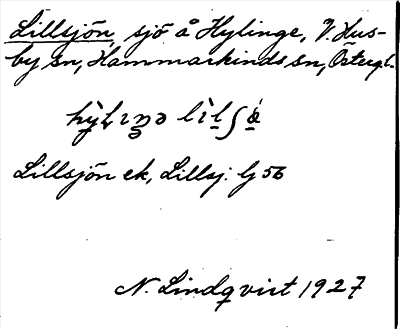 Lillsjön, sjö å Hylinge, V. Hus-
by sn, Hammarkinds sn, Östergl.
Lillsjön ek, Lillsj. G 56
N. Lindqvist 1927